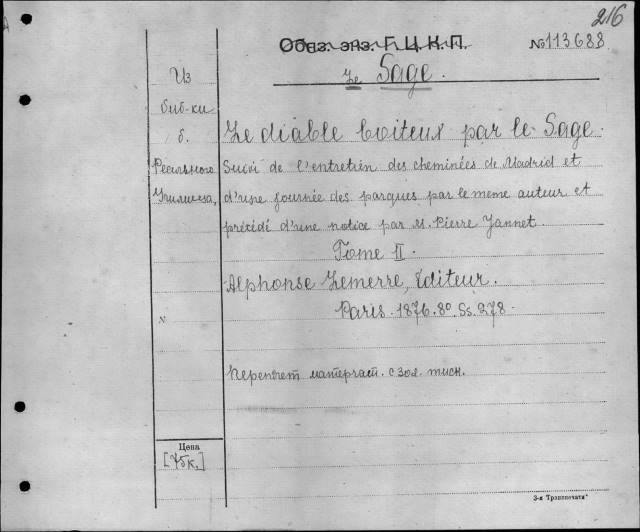 216
Обяз. экз. Г. Ц. К. П. №113688
Le Sage.
Из
биб-ки
б.
Реального
Училища,
Le diable boiteux par le Sage.
Suivi de l'entretien des cheminées de Madrid et
d'une journée des parques par le meme auteur et
précédé d'une notice par M. Pierre Jannet.
Tome II.
Alphonse Lemerre, Editeur.
Paris. 1876. 8º. Ss. 278.
N
Переплет матерчат. с зол. тисн.
Цена
[75к.]
3-я Транспечати"